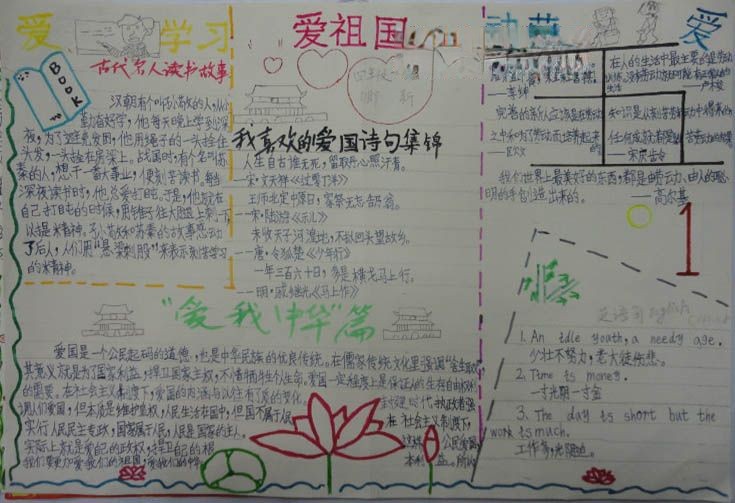 爱 学习
爱祖国
劳动 爱
古代名人读书故事
BOOK
汉朝有个叫孙敬的人,从小
勤奋好学,他每天晚上学到深
夜,为了避免发困,他用绳子的一头拴住
头发,一头拴在房梁上。战国时,有个名叫苏
秦的人,想干一番大事业,便刻苦读书。每当
深夜读书时,他总爱打盹。于是,他就在
自己打盹的时候,用锥子往大腿上刺一下,
以提精神。孙敬和苏秦的故事感动
了后人,人们用"悬梁刺股"来表示刻苦学习
的精神。
我喜欢的爱国诗句集锦
人生自古谁无死,留取丹心照汗青。
—宋·文天祥《过零丁洋》
王师北定中原日,家祭无忘告乃翁。
—宋·陆游《示儿》
未收天子河湟地,不拟回头望故乡。
—唐·令狐楚《少年行》
一年三百六十日,多是横戈马上行。
—明·戚继光《马上作》
在人的生活中最主要的是劳动
训练,没有劳动
生活 —卢梭
我们世界上最美好的东西,都是由劳动、由人的聪
明的手创造出来的。 —高尔基
1
"爱我中华"篇
爱国是一个公民起码的道德,也是中华民族的优良传统。在儒家传统文化里强调"舍生取义"
其意义就是为了国家利益,捍卫国家主权,不惜牺牲个人生命。爱国一定程度上是保证人的生存自由权利
的需要。在社会主义制度下,爱国的内涵与以往有质的变化。
调人们爱国,但本质是维护皇权,人民生活在国中,但国不属于人民
在社会主义制度下,
实行人民民主专政,国家属于人民,人民是国家的主人。
实际上就是爱自己的政权,捍卫自己的根
英语角 English Corner
1. An idle youth, a needy age.
少壮不努力,老大徒伤悲。
2. Time is money.
一寸光阴一寸金
3. The day is short but the
work is much.
工作多,光阴迫。